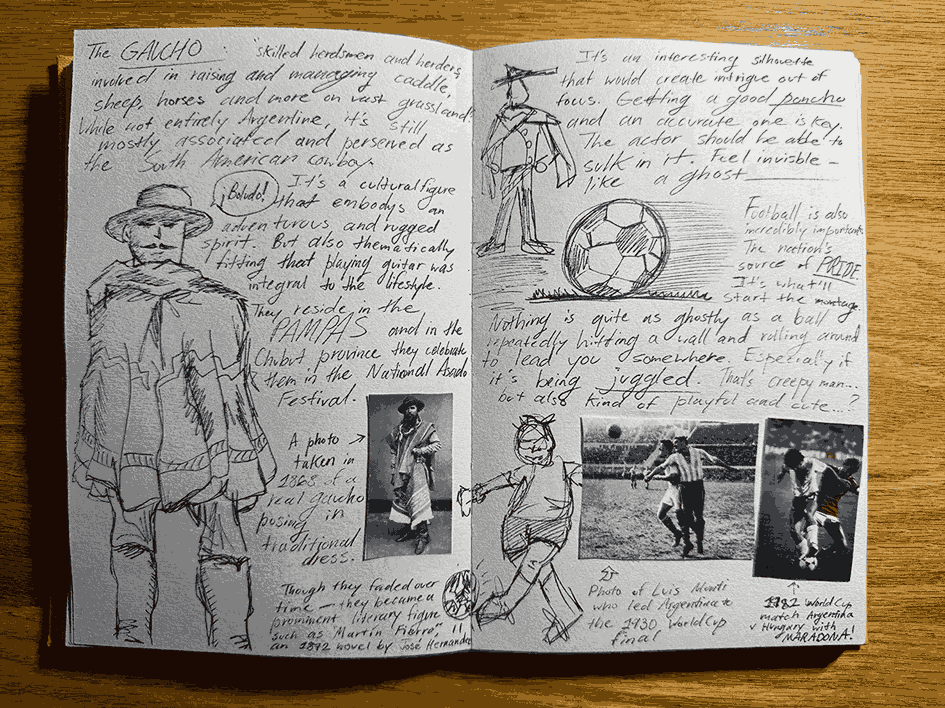 The GAUCHO : "skilled herdsmen and herders
involved in raising and managing caddle,
sheep, horses and more on vast grassland"
While not entirely Argentine, it's still
mostly associated and perserved as
the South American cowboy.
¡Boludo!
It's a cultural figure
that embodys an
adventurous and rugged
spirit. But also thematically
fitting that playing guitar was
integral to the lifestyle.
They reside in the
PAMPAS and in the
Chubut province they celebrate
them in the National Asado
Festival.
A photo
taken in
1868 of a
real gaucho
posing in
traditional
dress.
Though they faded over
time — they became a
prominent literary figure
such as "Martin Fierro,"
an 1872 novel by José Hernandez
It's an interesting silhouette
that would create intrigue out of
focus. Getting a good poncho
and an accurate one is key.
The actor should be able to
sulk in it. Feel invisible –
like a ghost
Football is also
incredibly important.
The nation's
source of PRIDE
It's what'll
start the montage.
Nothing is quite as ghostly as a ball
repeatedly hitting a wall and rolling around
to lead you somewhere. Especially if
it's being juggled. That's creepy man...
but also kind of playful and cute...?
Photo of Luis Monti
who led Argentina to
the 1930 World Cup
final
1982 World Cup
match Argentina
v Hungary with
MARADONA!